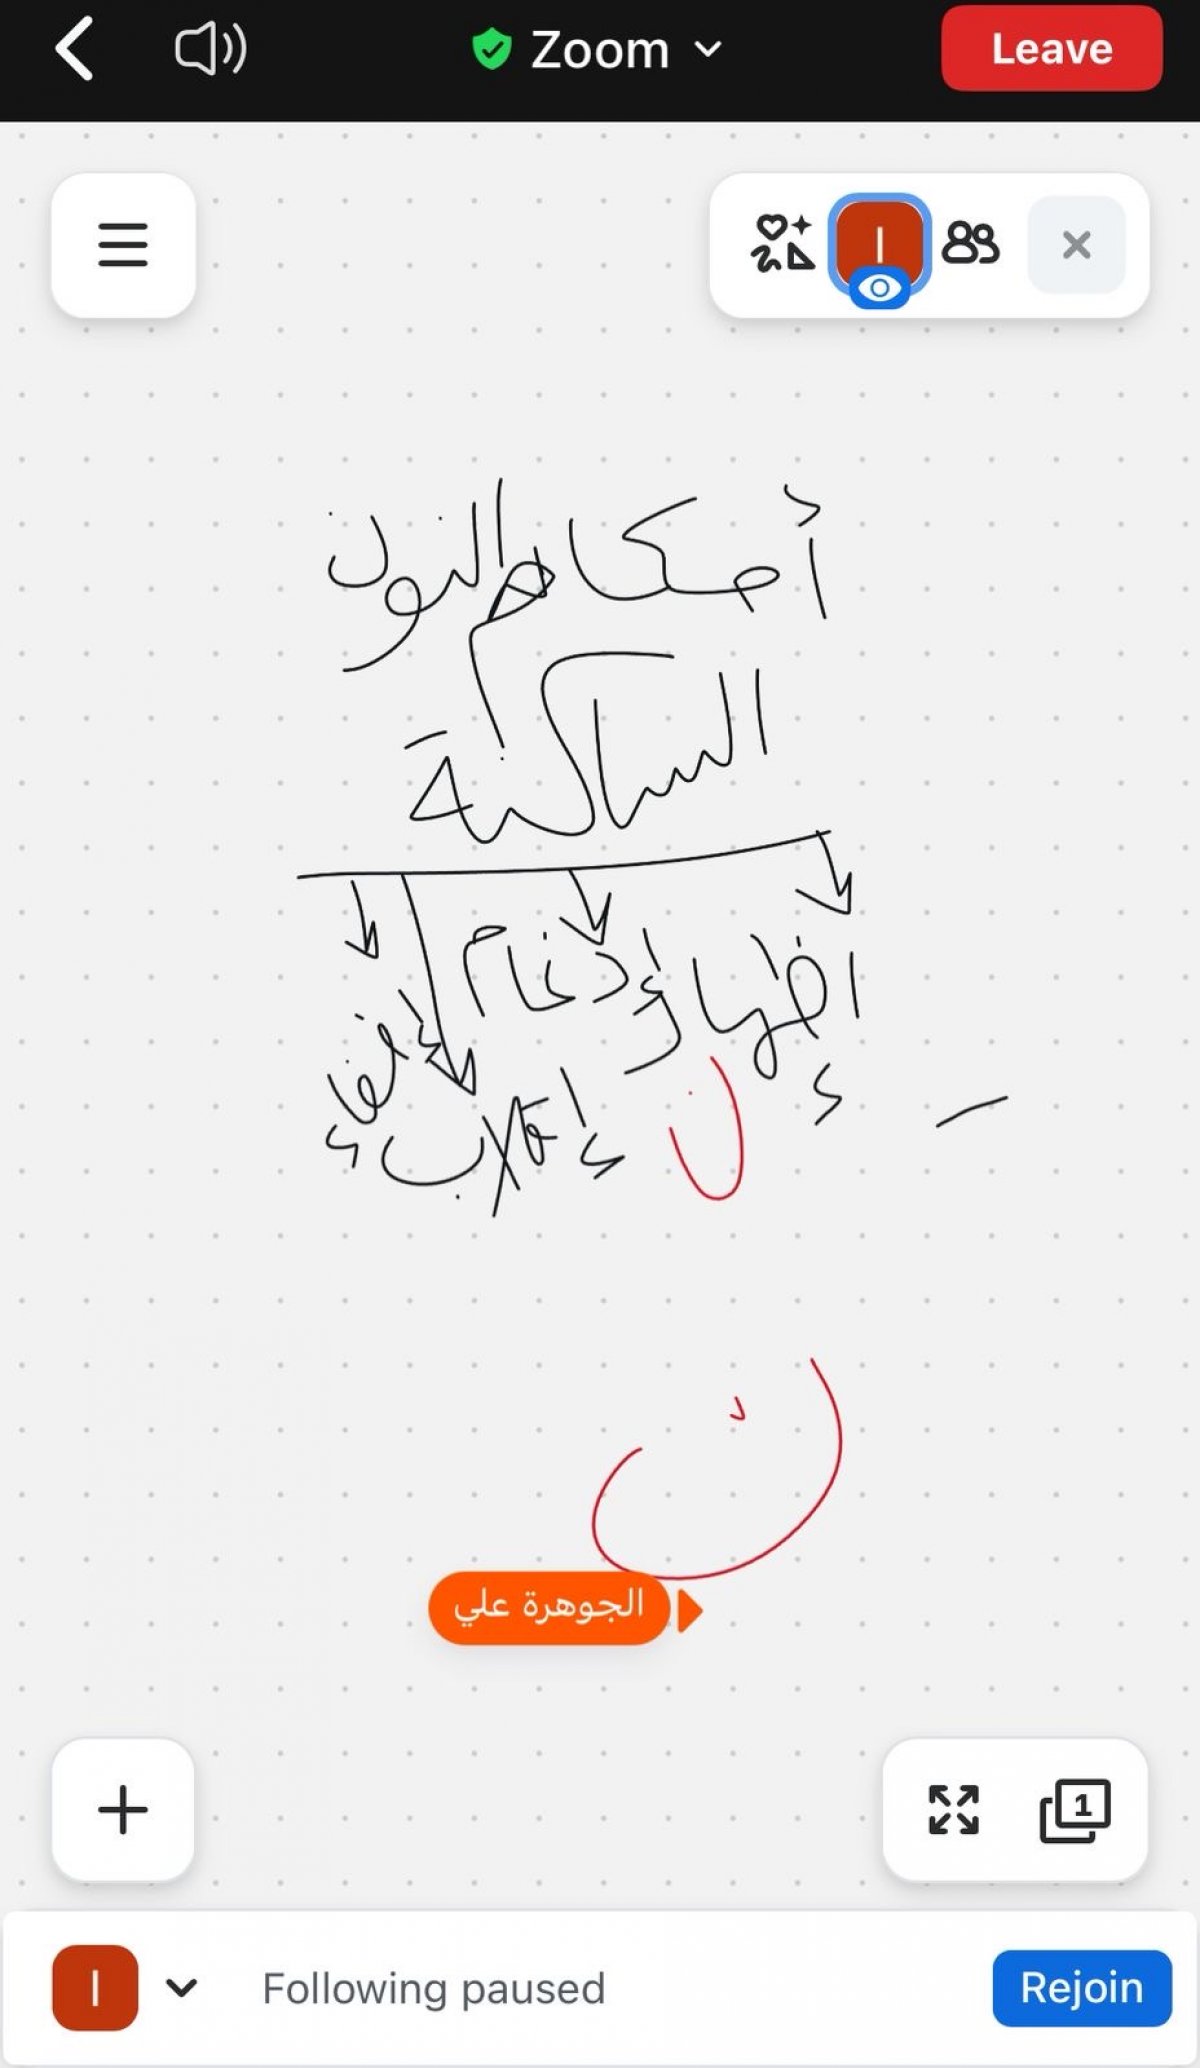 Zoom
Leave
أحكام النون
الساكنة
إظهار إدغام إخفاء
إقلاب
ن
ن
الجوهرة علي
1
I
Following paused
Rejoin